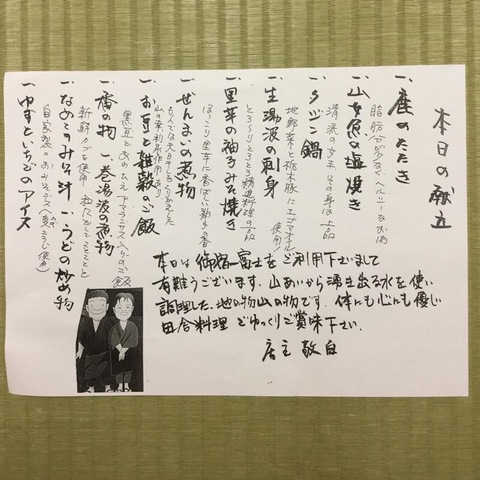 本日の献立
一、鹿のたたき
脂肪分が少なくヘルシーなお肉
一、山女魚の塩焼き
清流の女王 その身は上品
一、タジン鍋
地野菜と栃木豚にエゴマオイル使用
一、生湯波の刺身
とろ〜りとろとろ精進料理の一品
一、里芋の柚子みそ焼き
ほっこり里芋に香ばしい柚子の香
一、ぜんまいの煮物
一、お豆と雑穀のご飯
黒豆とあわ ひえ アマランサス入りのご飯
一、香の物 一、巻湯波の煮物
一、なめこのみそ汁 一、うどの炒め物
一、ゆずといちごのアイス
本日は御宿 富士をご利用下さいまして
有難うございます。山あいから湧き出る水を使い
調理した、地の物山の物です。体にも心にも優しい
田舎料理 ごゆっくりご賞味下さい。
店主 敬白